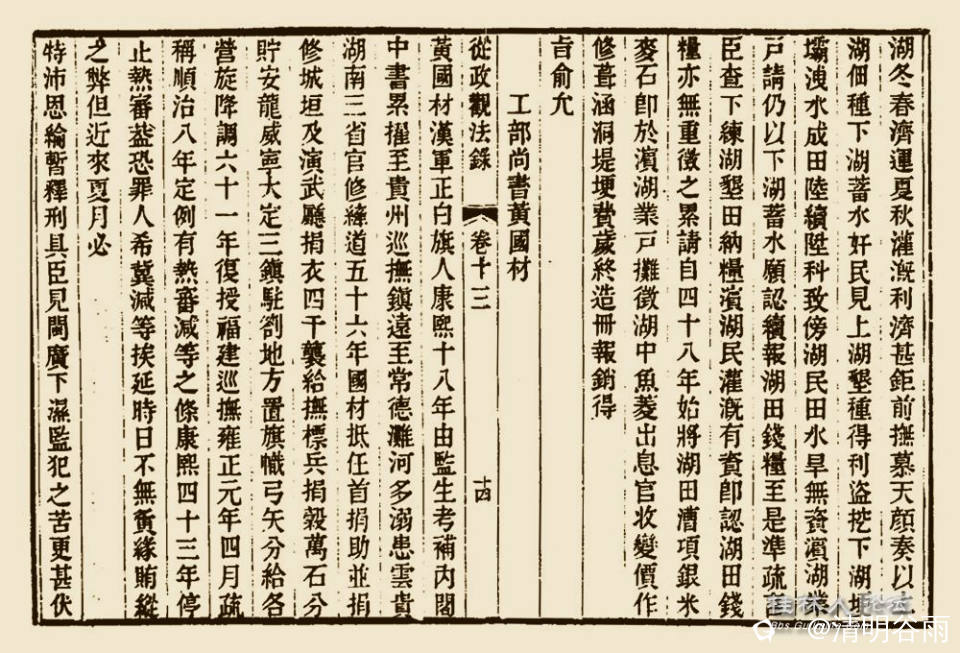 湖冬春濟運夏秋灌漑利濟甚鉅前撫慕天顏奏以上
湖佃種下湖蓄水奸民見上湖墾種得利盜挖下湖堤
壩洩水成田陸續陞科致傍湖民田水旱無資濱湖業
戸請仍以下湖蓄水願認續報湖田錢糧至是準疏
臣查下練湖墾田納糧濱湖民灌漑有資卽認湖田錢
糧亦無重徵之累請自四十八年始將湖田漕項銀米
麥石卽於濱湖業戸攤徵湖中魚菱出息官收變價作
修葺涵洞堤埂費歲終造冊報銷得
㫖俞允
工部尚書黃國材
從政觀法錄 卷十三 十四
黃國材漢軍正白旗人康熙十八年由監生考補內閣
中書累擢至貴州巡撫鎮遠至常德灘河多溺患雲貴
湖南三省官修縴道五十六年國材抵任首捐助並捐
修城垣及演武廳捐衣四千襲給撫標兵捐穀萬石分
貯安龍威寧大定三鎮駐劄地方置旗幟弓矢分給各
營旋降調六十一年復授福建巡撫雍正元年四月疏
稱順治八年定例有熱審減等之條康熙四十三年停
止熱審葢恐罪人希冀減等挨延時日不無夤緣賄縱
之弊但近來夏月必
特沛恩綸暫釋刑具臣見閩廣下濕監犯之苦更甚伏
桂林人论坛
@清明谷雨